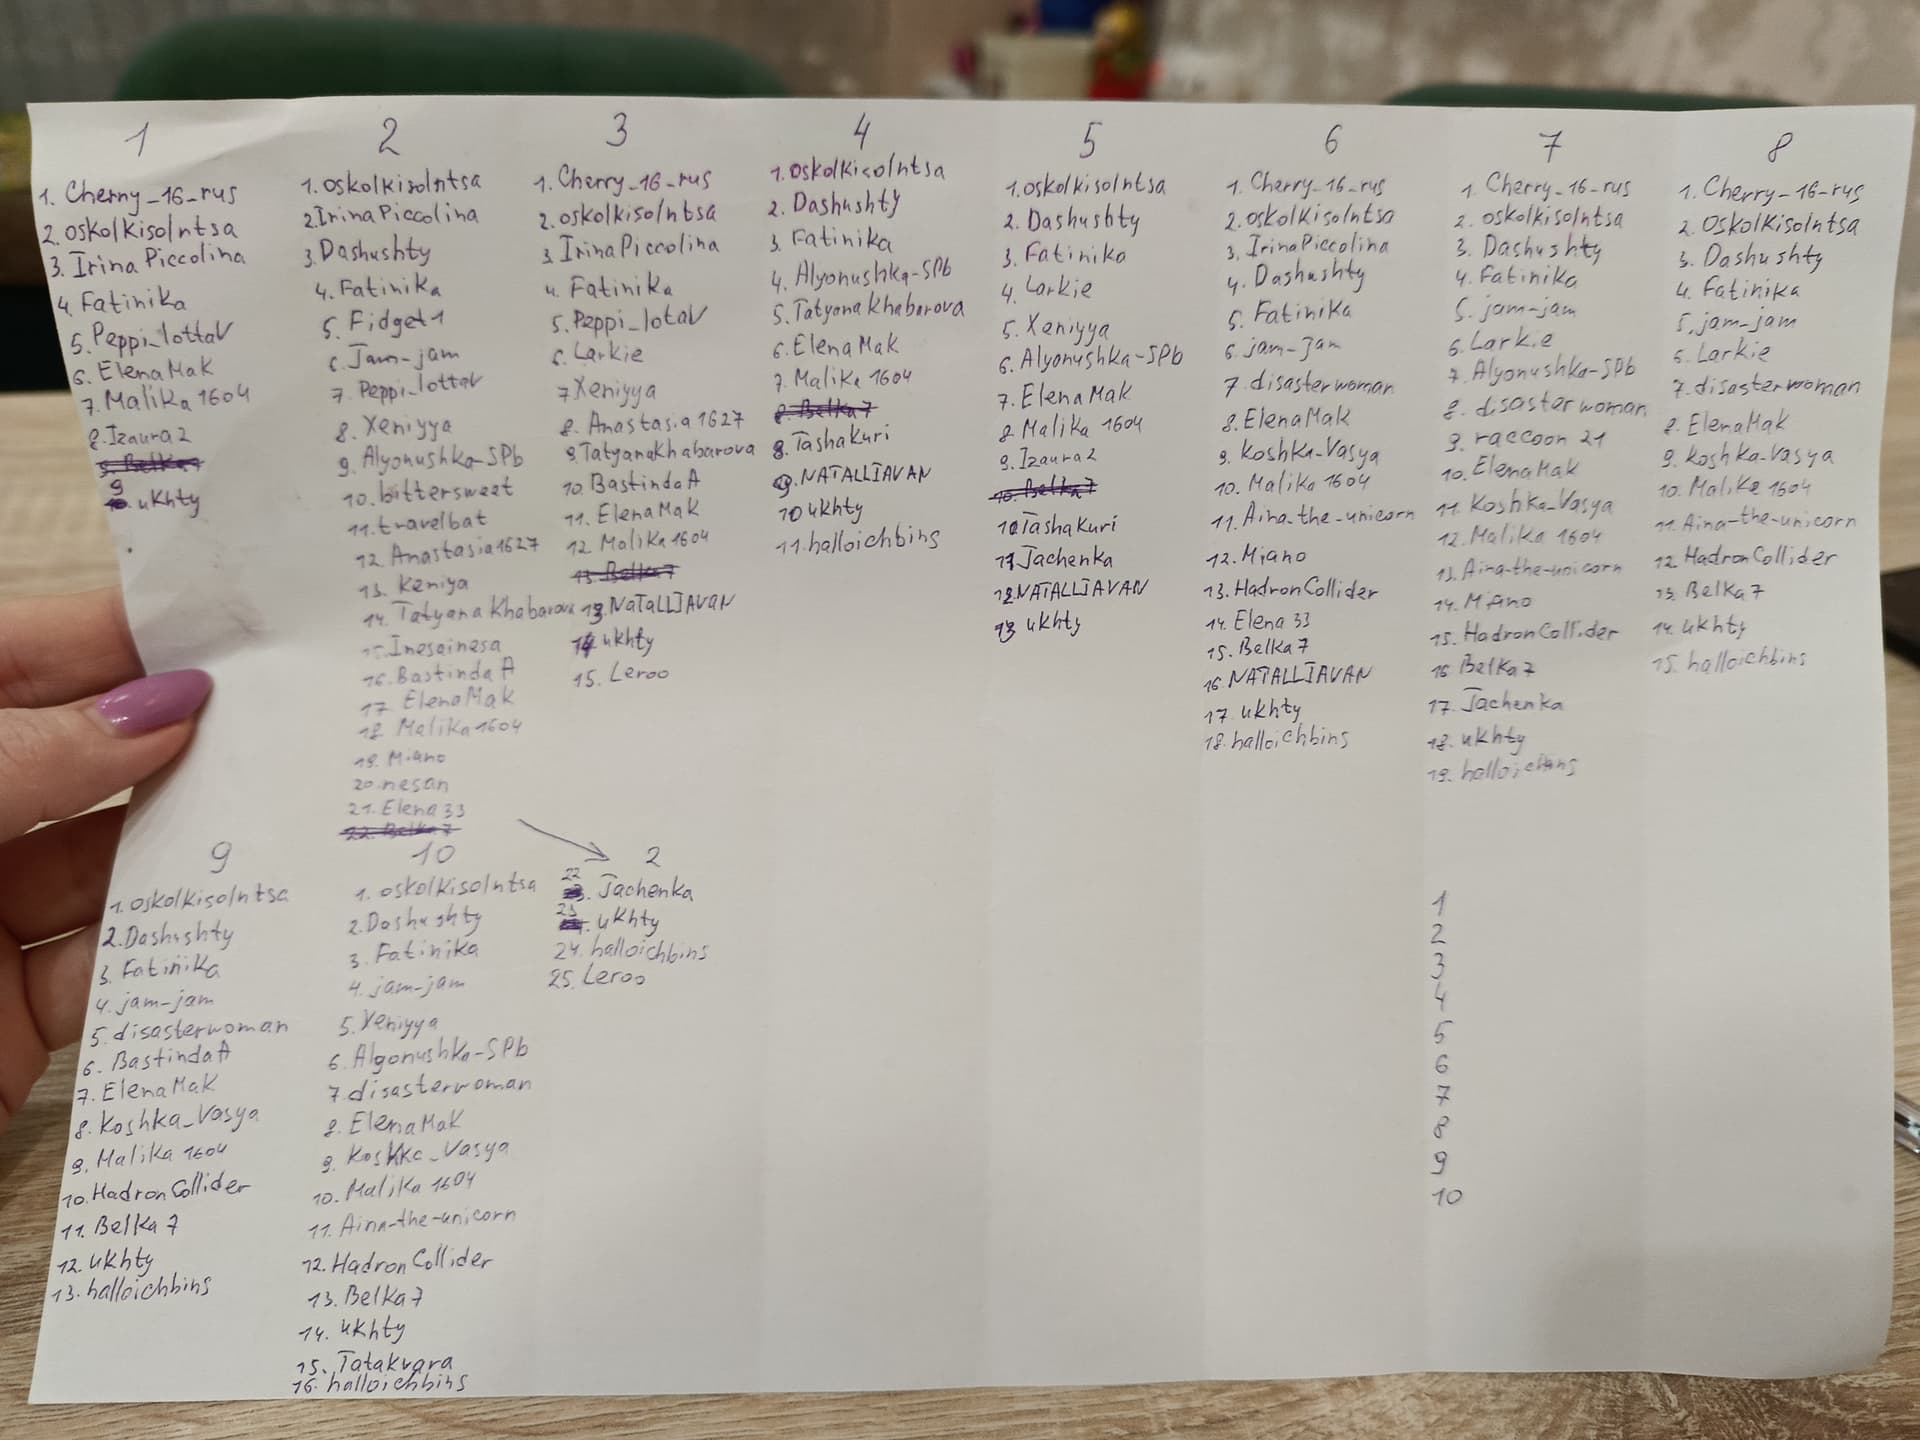 1
1. Cherry_16_rus
2. oskolkisolntsa
3. Irina Piccolina
4. Fatinika
5. Peppi_lottaV
6. ElenaMak
7. Malika 1604
8. Izaura2
9. Belka7
9
10. ukhty
2
1. oskolkisolntsa
2. IrinaPiccolina
3. Dashushty
4. Fatinika
5. Fidget1
6. Jam-jam
7. Peppi_lottaV
8. Xeniyya
9. Alyonushka-SPb
10. bittersweet
11. travelbat
12. Anastasia1627
13. Keniya
14. Tatyana Khabarova
15. Inesainesa
16. Bastinda A
17. ElenaMak
18. Malika 1604
19. Miano
20. nesan
21. Elena 33
22. Belka 7
3
1. Cherry_16_rus
2. oskolkisolntsa
3. IrinaPiccolina
4. Fatinika
5. Peppi_lotaV
6. Larkie
7 Xeniyya
8. Anastasia 1627
9. TatyanaKhabarova
10. BastindaA
11. ElenaMak
12. Malika 1604
13. Belka 7
13 NATALLIAVAN
14 ukhty
15. Leroo
4
1. oskolkisolntsa
2. Dashushty
3. Fatinika
4. Alyonushka-SPb
5. Tatyana Khabarova
6. ElenaMak
7. Malika 1604
8. Belka 7
8. Tashakuri
9. NATALLIAVAN
10 ukhty
11. halloichbins
5
1. oskolkisolntsa
2. Dashushty
3. Fatinika
4. Larkie
5. Xeniyya
6. Alyonushka-SPb
7. ElenaMak
8. Malika 1604
9. Izaura2
10. Belka7
10 Tashakuri
11 Jachenka
12 NATALLIAVAN
13 ukhty
6
1. Cherry_16_rus
2. oskolkisolntsa
3. IrinaPiccolina
4. Dashushty
5. Fatinika
6. jam-jam
7. disasterwoman
8. ElenaMak
9. Koshka_Vasya
10. Malika 1604
11. Aina-the-unicorn
12. Miano
13. HadronCollider
14. Elena 33
15. Belka 7
16. NATALLIAVAN
17. ukhty
18. halloichbins
7
1. Cherry_16_rus
2. oskolkisolntsa
3. Dashushty
4. Fatinika
5. jam-jam
6. Larkie
7. Alyonushka-SPb
8. disasterwoman
9. raccoon 21
10. ElenaMak
11. Koshka_Vasya
12. Malika 1604
13. Aina-the-unicorn
14. Miano
15. HadronCollider
16 Belka 7
17. Jachenka
18. ukhty
19. halloichbins
8
1. Cherry_16_rus
2. oskolkisolntsa
3. Dashushty
4. Fatinika
5. jam-jam
6. Larkie
7. disasterwoman
8. ElenaMak
9. Koshka_Vasya
10. Malika 1604
11. Aina-the-unicorn
12. HadronCollider
13. Belka 7
14. ukhty
15. halloichbins
9
1. oskolkisolntsa
2. Dashushty
3. Fatinika
4. jam-jam
5. disasterwoman
6. BastindaA
7. ElenaMak
8. Koshka_Vasya
9. Malika 1604
10. HadronCollider
11. Belka 7
12. ukhty
13. halloichbins
10
1. oskolkisolntsa
2. Dashushty
3. Fatinika
4. jam-jam
5. Xeniyya
6. Alyonushka-SPb
7. disasterwoman
8. ElenaMak
9. Koshka_Vasya
10. Malika 1604
11. Aina-the-unicorn
12. HadronCollider
13. Belka 7
14. ukhty
15. Tatakvara
16. halloichbins
2
22 Jachenka
23 ukhty
24. halloichbins
25. Leroo
1
2
3
4
5
6
7
8
9
10